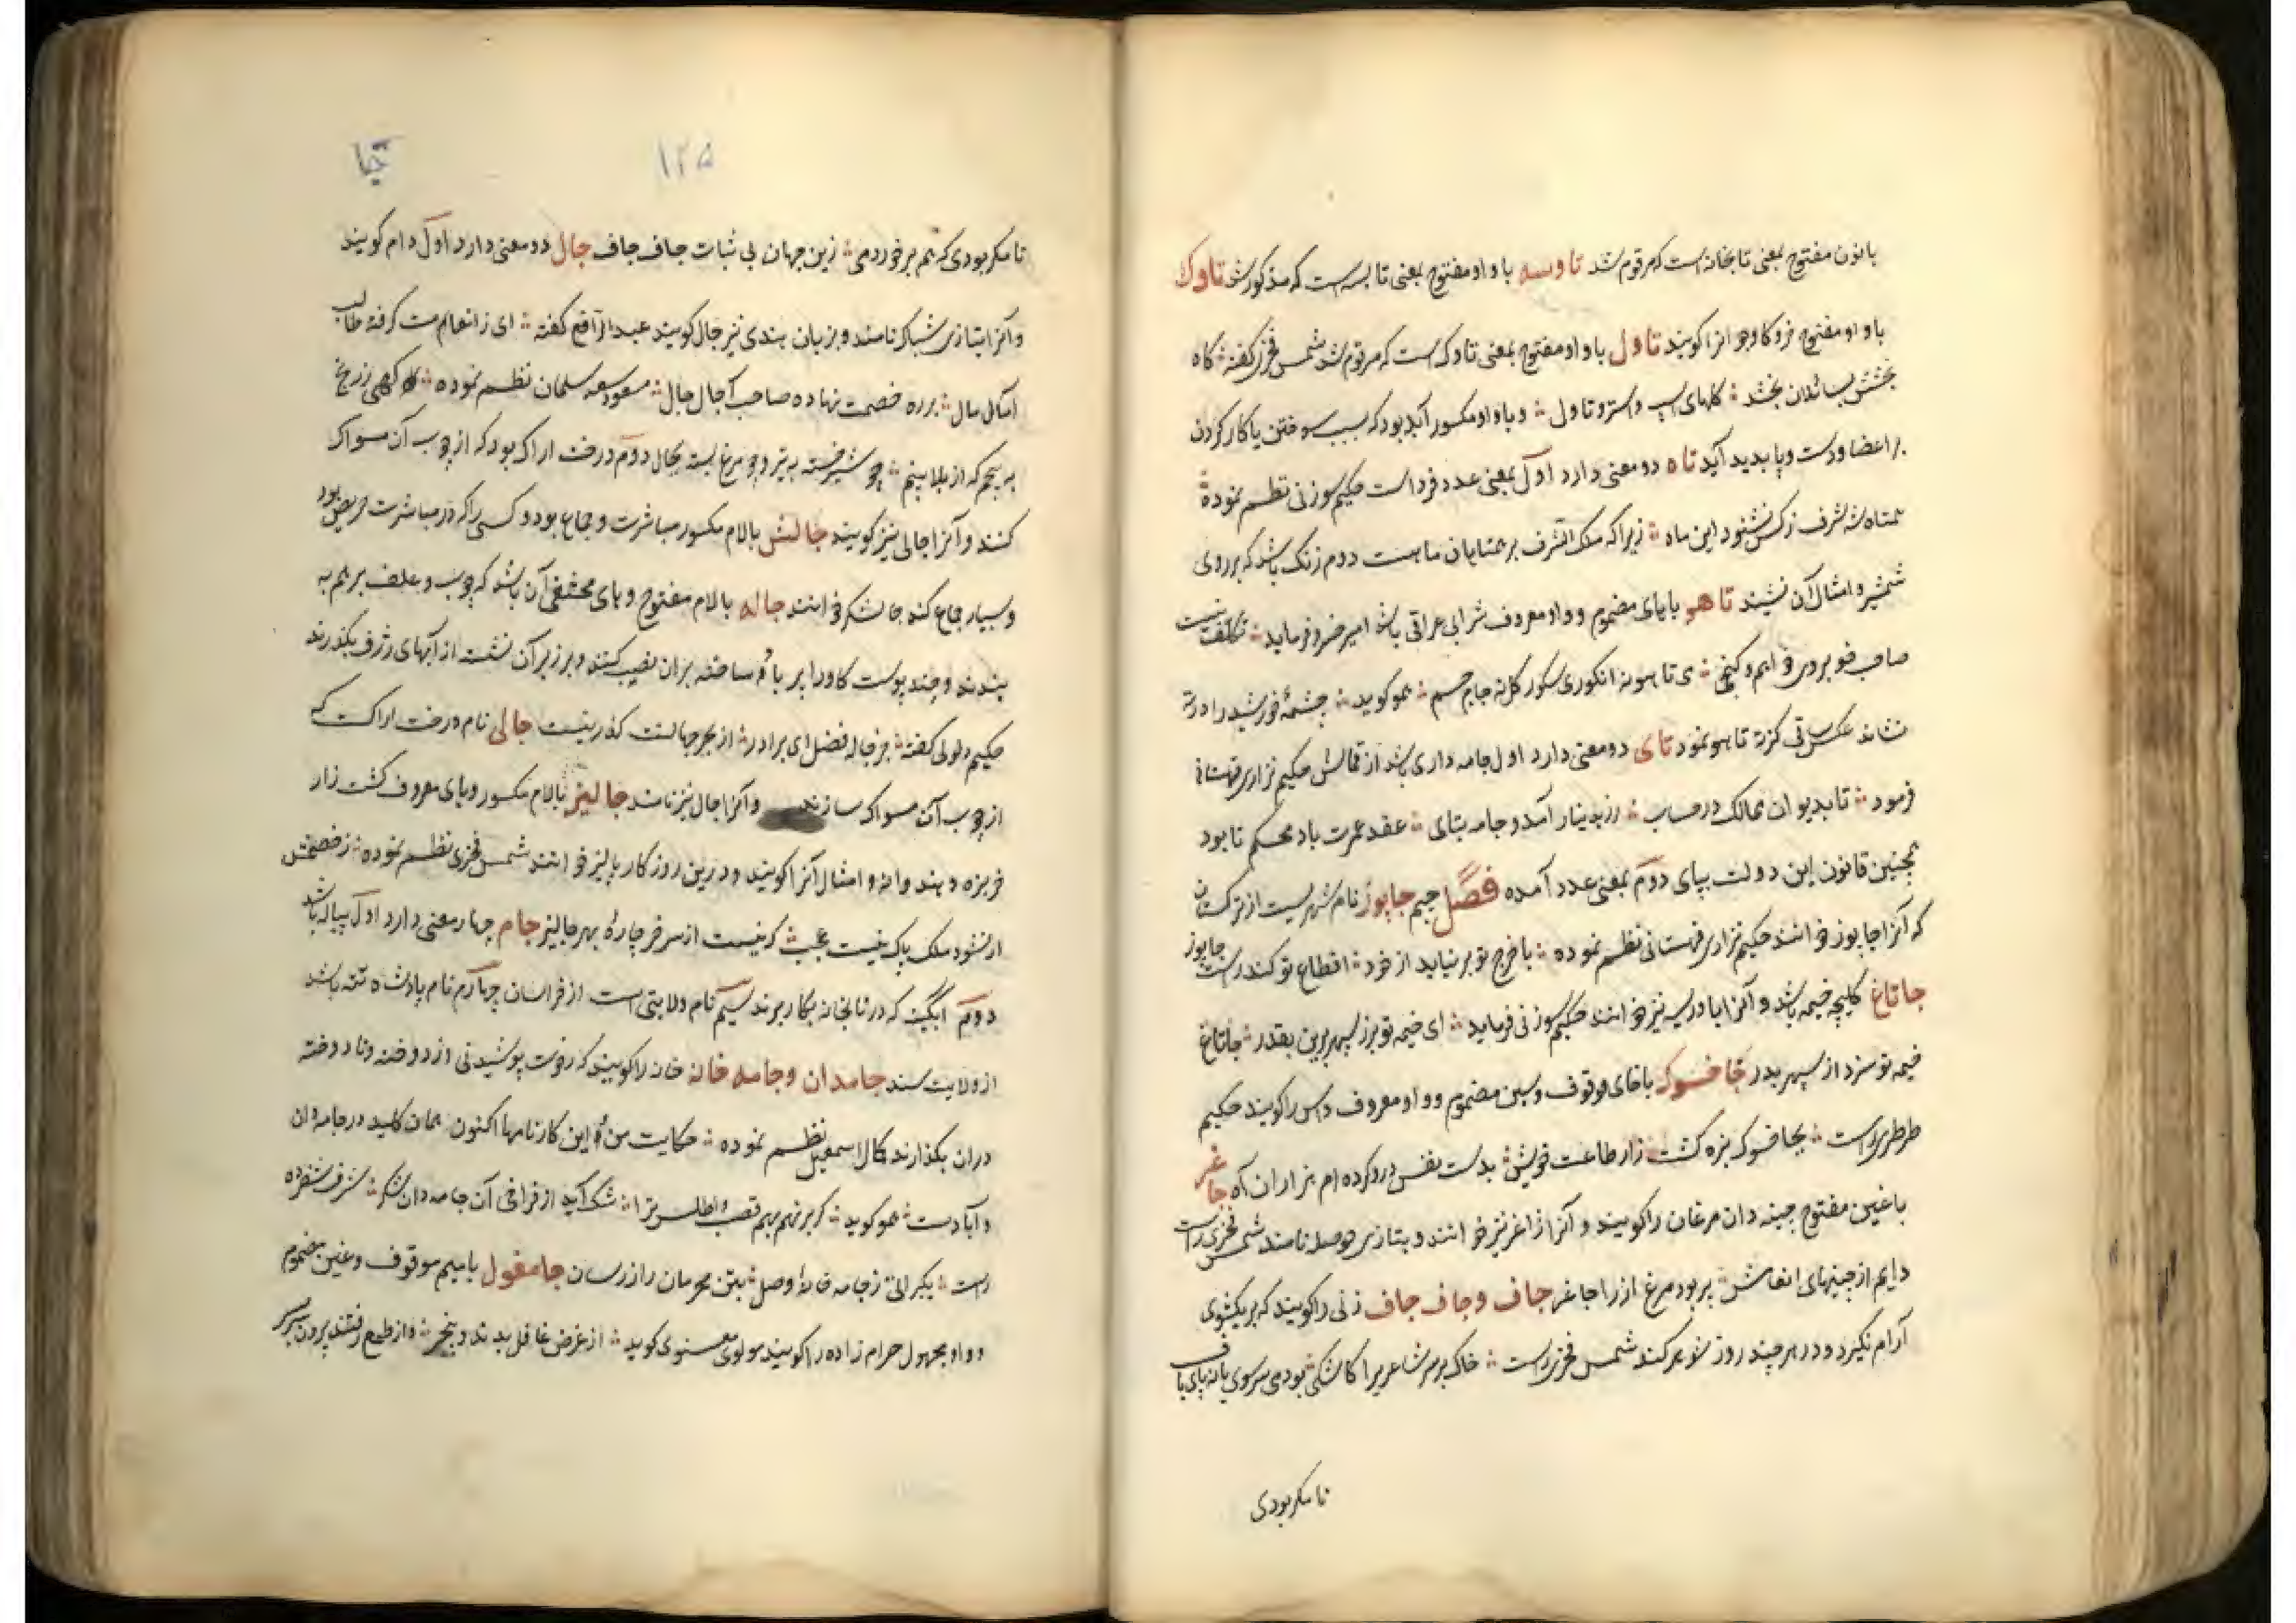 بانون مفتوح بمعنی تابخانه است که مرقوم شد تاوسه باواو مفتوح بمعنی تابسه است که مذکور شد تاوک
باواو مفتوح نرکاو جوانرا کویند تاول باواو مفتوح بمعنی تاوک است که مرقوم شد شمس فخری کفته کاه
بخشش بسائلان بخشد کلهای اسپ و استر و تاول وباواو مکسور آبله بود که بسبب سوختن یا کار کردن
بر اعضا و دست و پا پدید آید تاه دو معنی دارد اول بمعنی عدد فرد است حکیم سوزنی نظم نموده
همتاه شه شرف زکس نشنود این ماه زیراکه ملک الشرف بر همتایان ماهست دوم زنک باشد که بر روی
شمشیر و امثال آن نشیند تاهو باهای مضموم و واو معروف شرابی عراقی باشد امیر خسرو فرماید
صاف خوبروی جام جسم هموکوید چشمه خورشید را
نشاند عکس ساقی کزته تاهو نمود تای دو معنی دارد اول جامه واری باشد از قماش حکیم نزاری قهستانی
فرمود تا بدیوان ممالک در حساب زر بدینار آمد و جامه بتای عقد عمرت باد محکم تا بود
همچنین قانون این دولت بپای دوم بمعنی عدد آمده فصل جیم جابوز نام شهریست از ترکستان
که آنرا چابوز خوانند حکیم نزاری قهستانی نظم نموده با خرج تو بر نیاید از خود اقطاع تو کندرست جابوز
جاتاغ کلیچه خیمه باشد و آنرا بادریسه نیز خوانند حکیم سوزنی فرماید ای خیمه تو برز سپهر برین بقدر جاتاغ
خیمه تو سزد از سپهر بدر جاخسوک باخای موقوف و سین مضموم و واو معروف داس را کویند حکیم
طرطری راست بجاخسوک بزه کشت زار طاعت خویش بدست نفس درو کرده ام هزاران آه جاغر
باغین مفتوح چینه دان مرغان را کویند و آنرا ژاغر نیز خوانند و بتازی حوصله نامند شمس فخری راست
دایم از چینهای انعامش پر بود مرغ آز را جاغر جاف و جاف جاف زنی را کویند که بر یکشوی
آرام نکیرد و در هر چند روز شوهر کند شمس فخری راست خاک بر سر شاعریرا کاشکی بودمی سرسوی یا نه پای باف
تا مکر بودی
۱۲۵
جا
تا مکر بودی که هم برخوردمی زین جهان بی ثبات جاف جاف جال دو معنی دارد اول دام کویند
و آنرا بتازی شباک نامند و بزبان هندی نیز جال کویند عبدالرافع کفته ای ز انعام مت کرفته طالب
امال مال بر ره خصمت نهاده صاحب آجال جال مسعود سعد سلمان نظم نموده کهی زرنج
بپیچم که از بلا بپیچم چو شیر خسته به تیر و چو مرغ بسته بجال دوم درخت اراک بود که از چوب آن مسواک
کنند و آنرا جالی نیز کویند جالش بالام مکسور مباشرت و جماع بود و کسی را که در مباشرت حریص بود
و بسیار جماع کند جالشکر خوانند جاله بالام مفتوح و های مختفی آن باشد که چوب و علف بر هم به
بندند و چند پوست کاو را پر باد ساخته بران نصب کنند و بر زبر آن نشسته از آبهای ژرف بکذرند
حکیم دلولی کفته جز جاله فضل ای برادر از بحر جهالت کذر نیست جالی نام درخت اراکست که
از چوب آن مسواک سازند و آنرا جال نیز نامند جالیز بالام مکسور و یای معروف کشت زار
خربزه و هندوانه و امثال آنرا کویند و درین روزکار پالیز خوانند شمس فخری نظم نموده ز خصمش
ار نشود ملک پاک نیست عجب که نیست از سر خر چارهٔ بهر جالیز جام چهار معنی دارد اول پیاله باشد
دوم آبکینه که در تابخانه بکار برند سیم نام ولایتی است از خراسان چهارم نام پادشاه تته باشد
از ولایت سند جامدان و جامه خانه خانه را کویند که رخوت پوشیدنی از دوخته و نادوخته
دران بکذارند کمال اسمعیل نظم نموده حکایت من و این کارنامها اکنون همان کلید در جامه دان
و آبادست هموکوید کر بر نهم بهم قصب و اطلس ترا شک آید از فراخی آن جامه دان شکر شرف شفروه
راست ز جامه خانهٔ وصل بتن محرمان راز رسان جامغول بامیم موقوف و غین مضموم
و واو مجهول حرام زاده را کویند مولوی معنوی کوید از غرض غافل بدند و بیخبر وز طمع رفتند بیرون